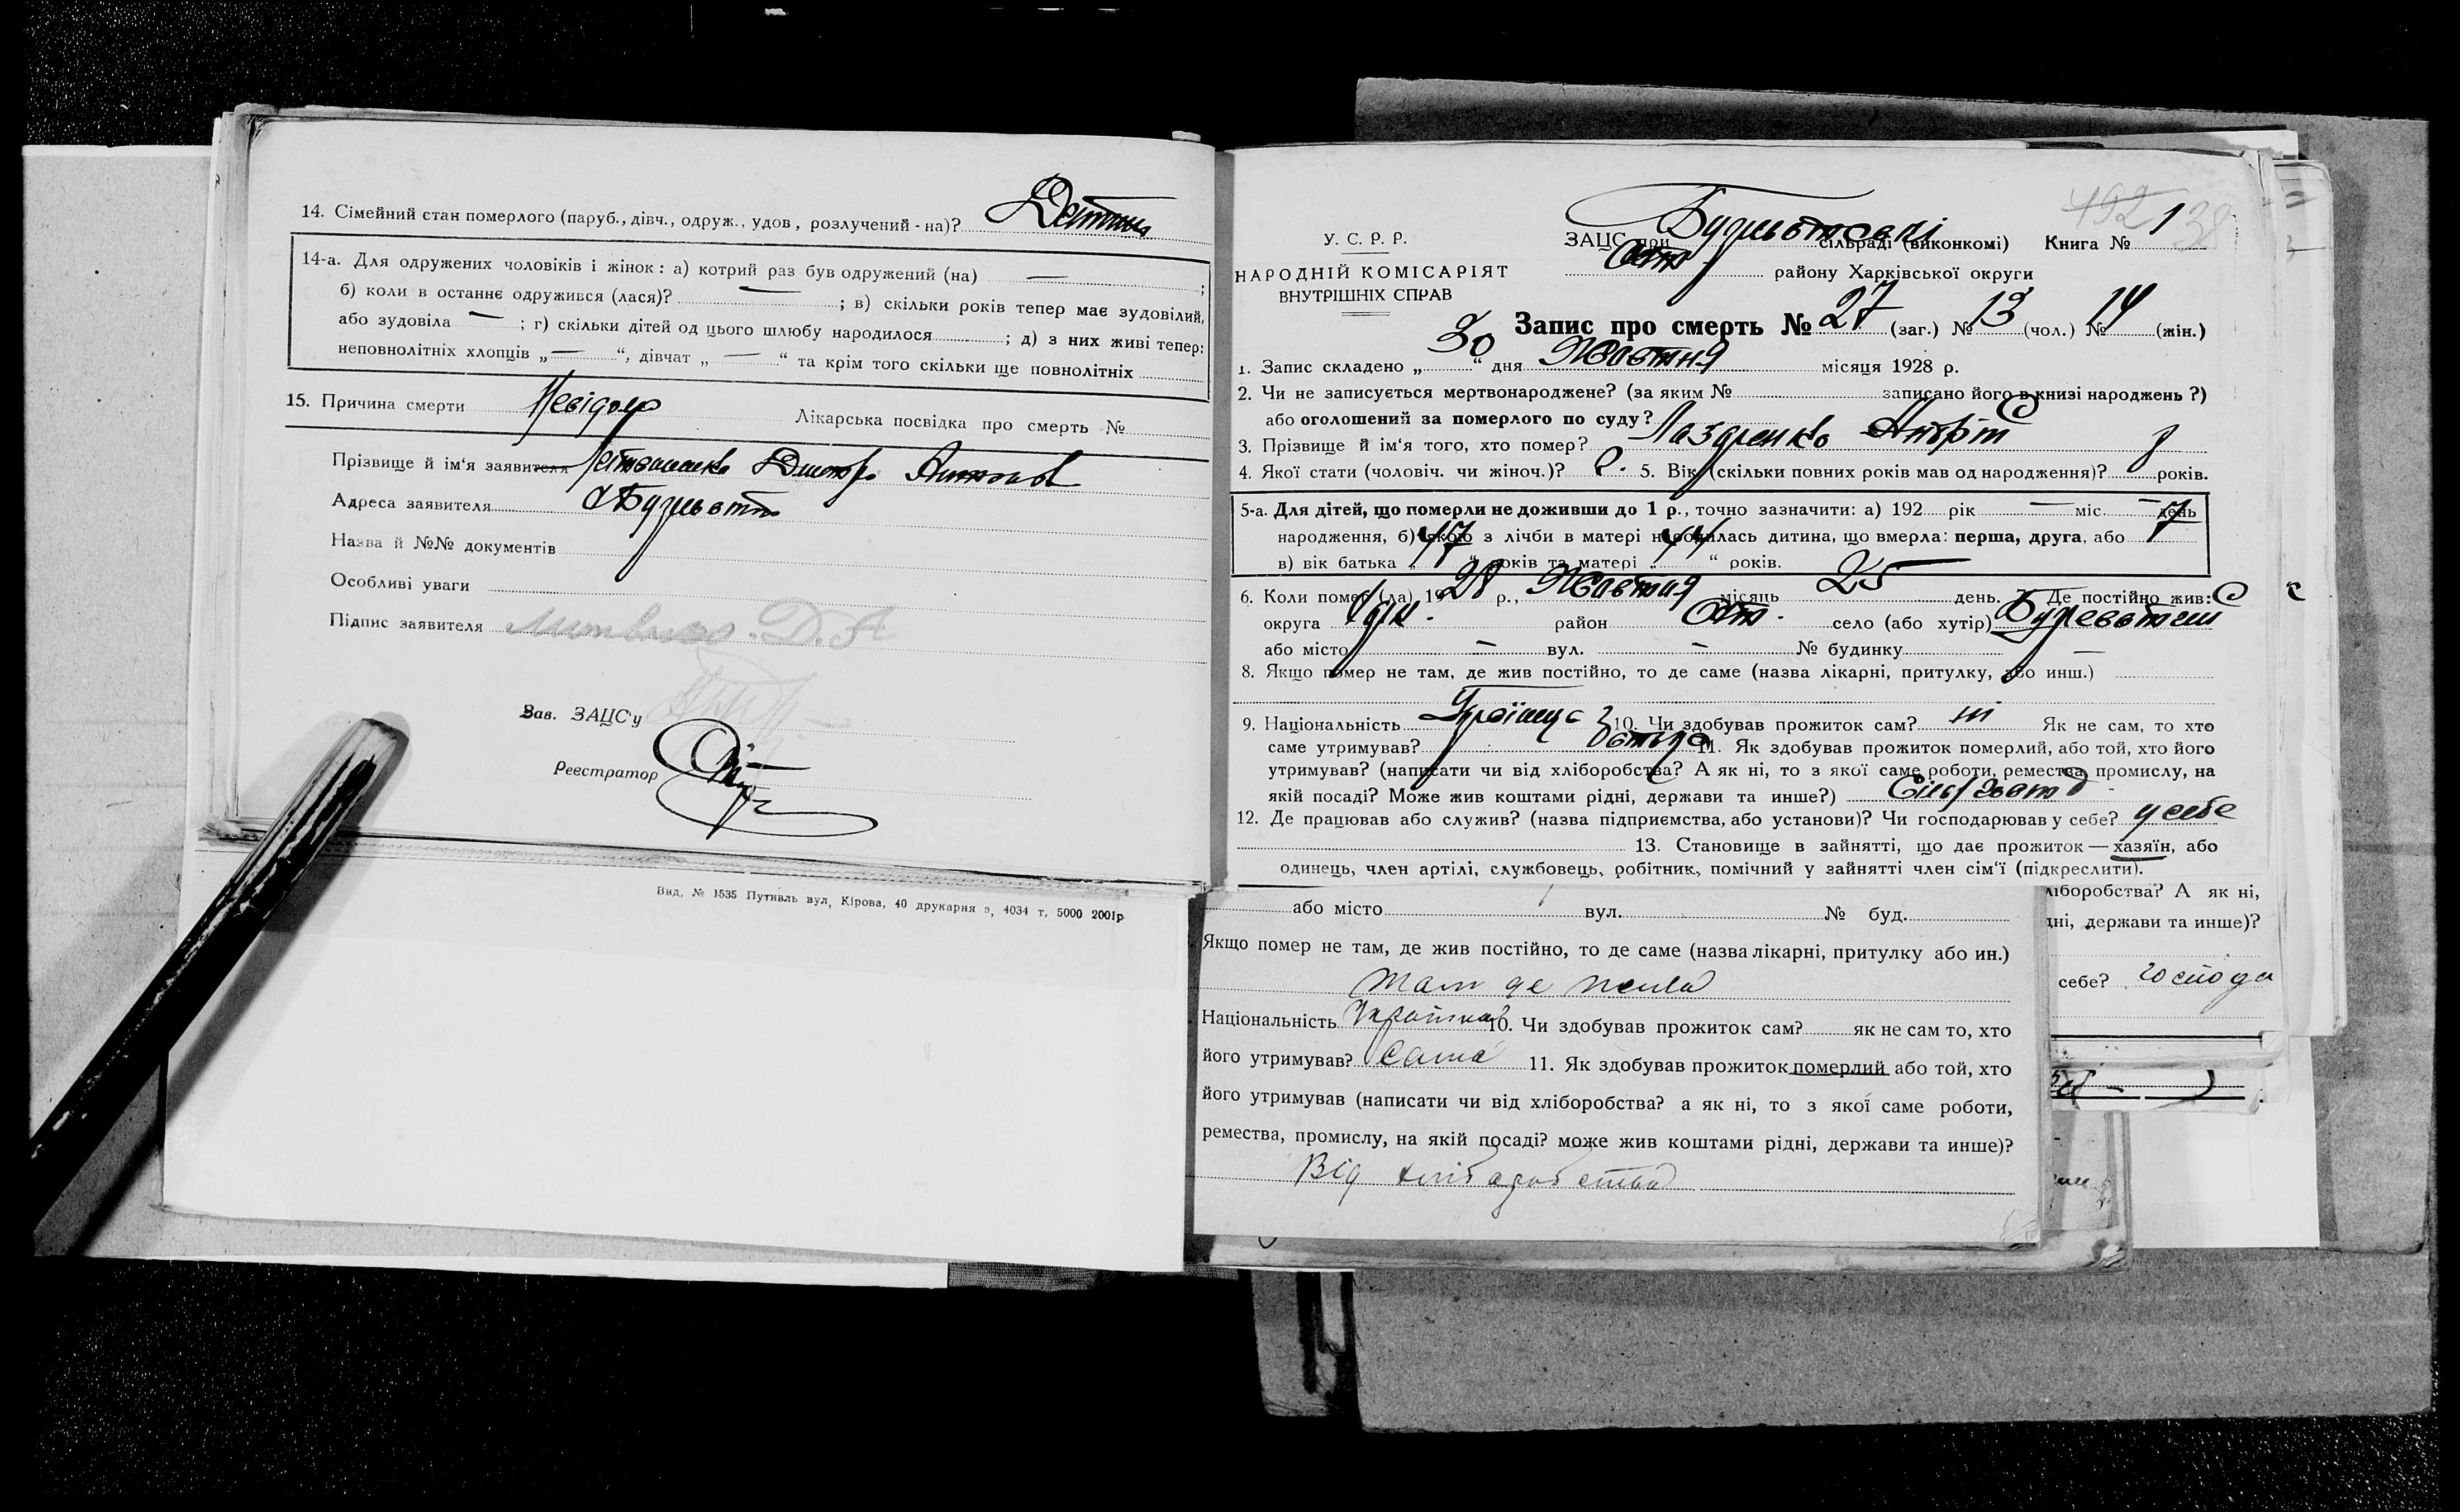 14. Сімейний стан померлого (паруб., дівч., одруж., удов, розлучений - на)?
14-а. Для одружених чоловіків і жінок: а) котрий раз був одружений (на) — ;
б) коли в останнє одружився (лася)? — ; в) скільки років тепер має зудовілий,
або зудовіла — ; г) скільки дітей од цього шлюбу народилося ; д) з них живі тепер:
неповнолітніх хлопців „ — “, дівчат „ — “ та крім того скільки ще повнолітніх
15. Причина смерти Невідома Лікарська посвідка про смерть №
Прізвище й ім‘я заявителя Дмитро
Адреса заявителя
Назва й №№ документів
Особливі уваги
Підпис заявителя Д. А
Зав. ЗАЦС‘у
Реєстратор
Вид. № 1535 Путивль вул, Кірова, 40 друкарня з, 4034 т, 5000 2001р
У. С. Р. Р.
НАРОДНІЙ КОМІСАРІЯТ
ВНУТРІШНІХ СПРАВ
ЗАЦС при сільраді (виконкомі) Книга № 1
району Харківської округи
Запис про смерть № 27 (заг.) № 13 (чол.) № 14 (жін.)
1. Запис складено „ 30 “ дня Жовтня місяця 1928 р.
2. Чи не записується мертвонароджене? (за яким № записано його в книзі народжень ?)
або оголошений за померлого по суду?
3. Прізвище й ім‘я того, хто помер? Лазаренко
4. Якої стати (чоловіч. чи жіноч.)? 5. Вік (скільки повних років мав од народження)? років.
5-а. Для дітей, що померли не доживши до 1 р., точно зазначити: а) 192 рік — міс. — день
народження, б) якою з лічби в матері народилась дитина, що вмерла: перша, друга, або 7
в) вік батька „ 47 “ років та матері „ 44 “ років.
6. Коли помер (ла) 1928 р., Жовтня місяць 25 день. 7. Де постійно жив:
округа район село (або хутір)
або місто — вул. — № будинку —
8. Якщо помер не там, де жив постійно, то де саме (назва лікарні, притулку, або инш.)
9. Національність 10. Чи здобував прожиток сам? ні Як не сам, то хто
саме утримував? 11. Як здобував прожиток померлий, або той, хто його
утримував? (написати чи від хліборобства? А як ні, то з якої саме роботи, ремества, промислу, на
якій посаді? Може жив коштами рідні, держави та инше?)
12. Де працював або служив? (назва підприємства, або установи)? Чи господарював у себе? у себе
13. Становище в зайнятті, що дає прожиток — хазяїн, або
одинець, член артілі, службовець, робітник, помічний у зайнятті член сім‘ї (підкреслити).
або місто вул. № буд.
Якщо помер не там, де жив постійно, то де саме (назва лікарні, притулку або ин.)
там де жила
Національність Українка 10. Чи здобував прожиток сам? як не сам то, хто
його утримував? сама 11. Як здобував прожиток померлий або той, хто
його утримував (написати чи від хліборобства? а як ні, то з якої саме роботи,
ремества, промислу, на якій посаді? може жив коштами рідні, держави та инше)?
Від хліборобства
ліборобства? А як ні,
дні, держави та инше)?
себе? господа